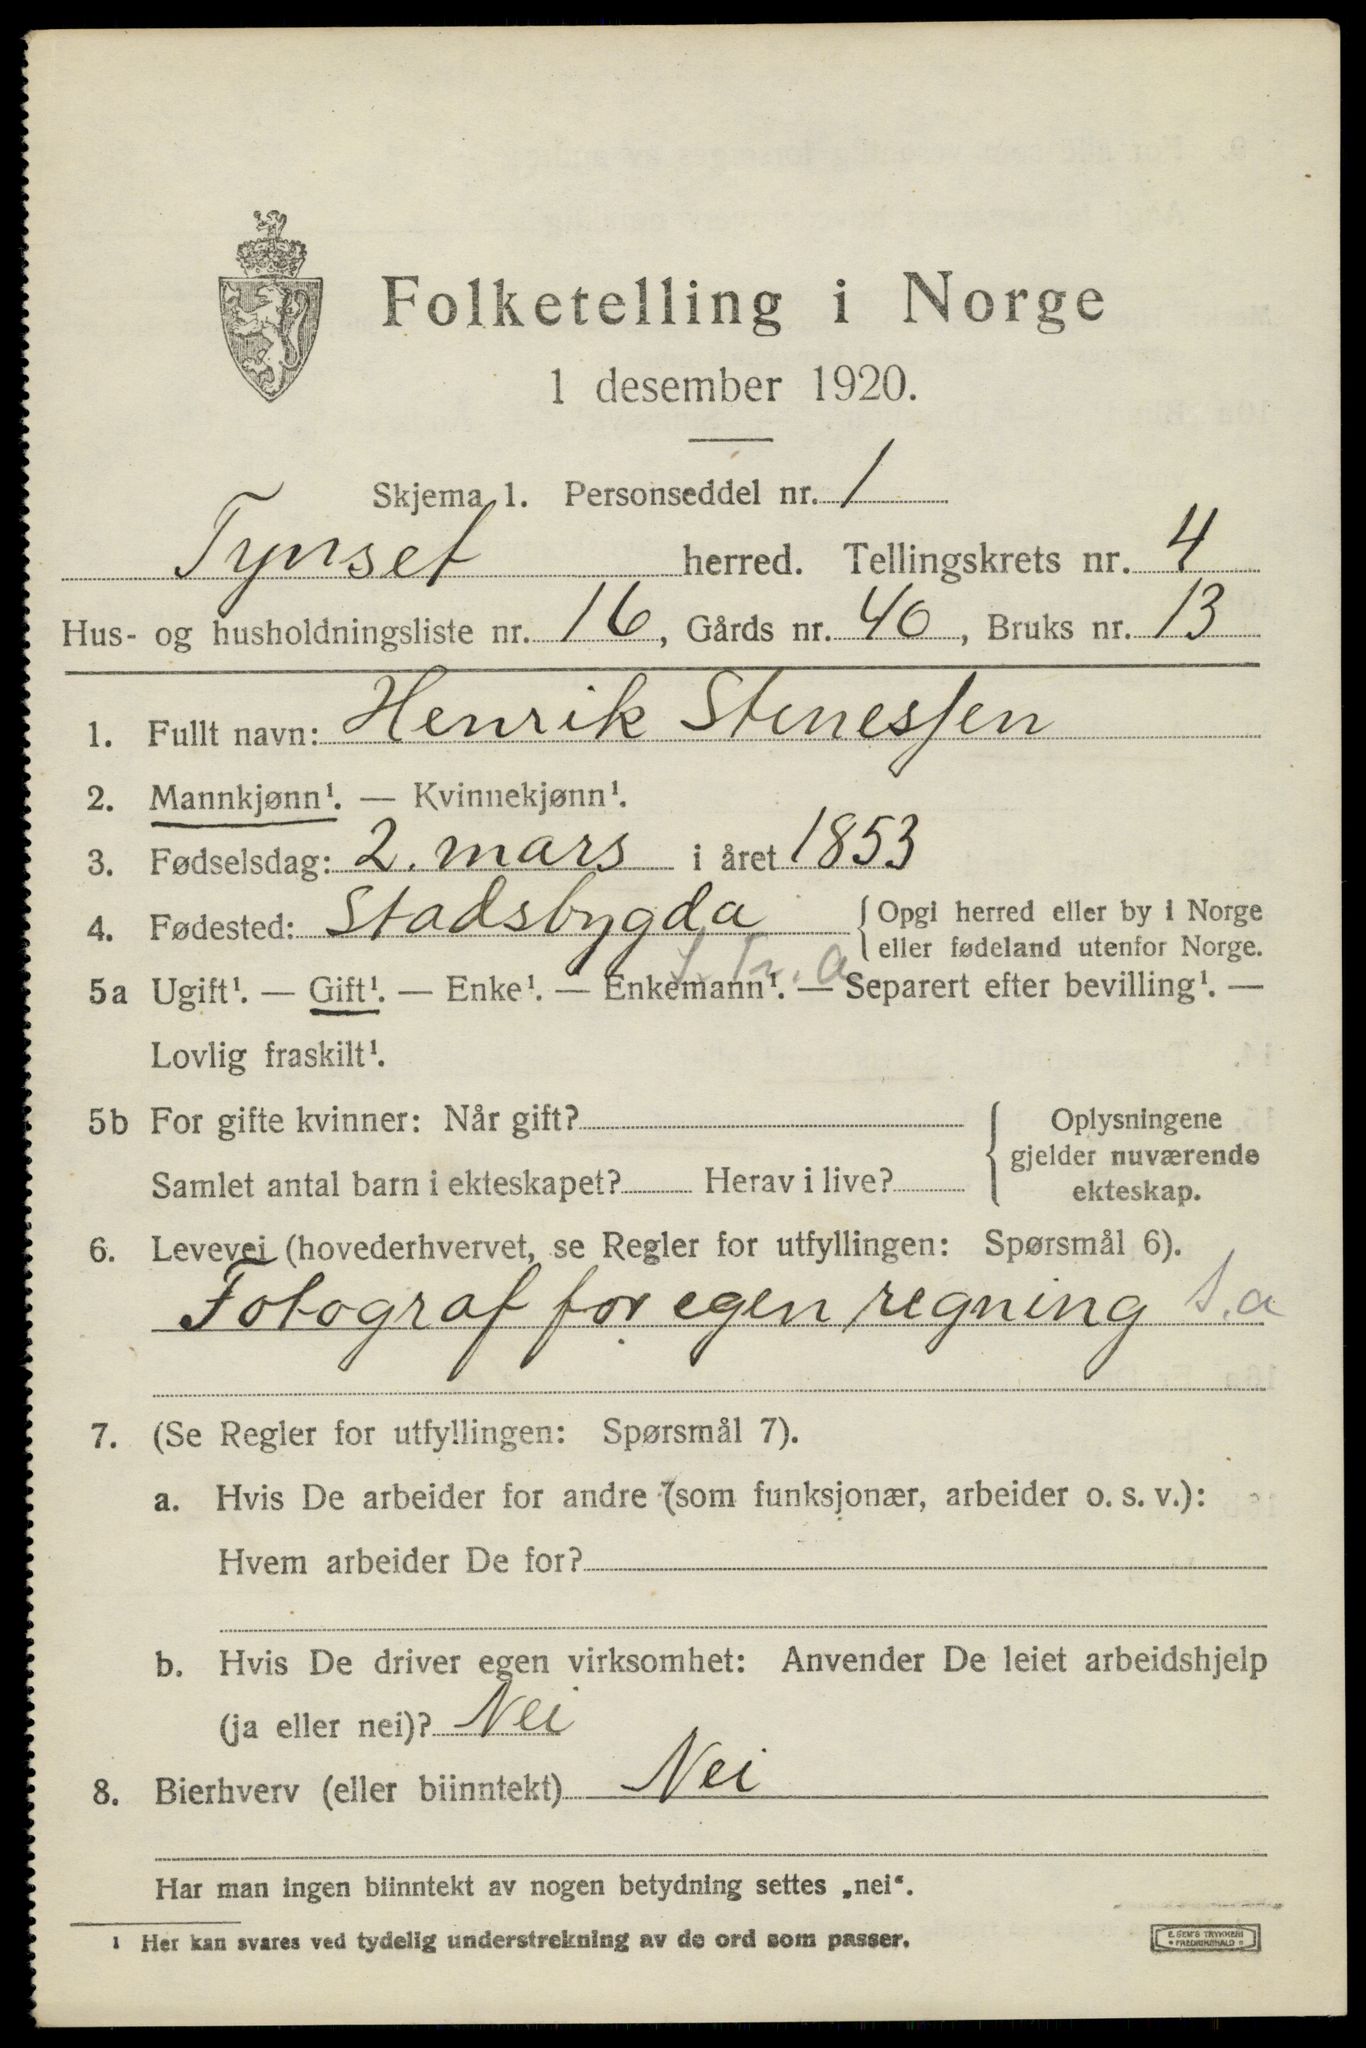 Folketelling i Norge
1 desember 1920.
Skjema 1. Personseddel nr. 1
Tynset herred. Tellingskrets nr. 4
Hus- og husholdningsliste nr. 16, Gårds nr. 40, Bruks nr. 13
1. Fullt navn: Henrik Stenessen
2. Mannkjønn¹. — Kvinnekjønn¹.
3. Fødselsdag: 2. mars i året 1853
4. Fødested: Stadsbygda { Opgi herred eller by i Norge
eller fødeland utenfor Norge.
S. Tr. a
5a Ugift¹. — Gift¹. — Enke¹. — Enkemann¹. — Separert efter bevilling¹. —
Lovlig fraskilt¹.
5b For gifte kvinner: Når gift? { Oplysningene
gjelder nuværende
Samlet antal barn i ekteskapet? Herav i live? ekteskap.
6. Levevei (hovederhvervet, se Regler for utfyllingen: Spørsmål 6).
Fotograf for egen regning S.a
7. (Se Regler for utfyllingen: Spørsmål 7).
a. Hvis De arbeider for andre (som funksjonær, arbeider o. s. v.):
Hvem arbeider De for?
b. Hvis De driver egen virksomhet: Anvender De leiet arbeidshjelp
(ja eller nei)? Nei
8. Bierhverv (eller biinntekt) Nei
Har man ingen biinntekt av nogen betydning settes „nei“.
¹ Her kan svares ved tydelig understrekning av de ord som passer.
E. SEM'S TRYKKERI
FREDRIKSHALD